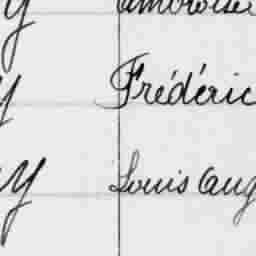 y Ambroise
y Frédéric
y Louis Aug